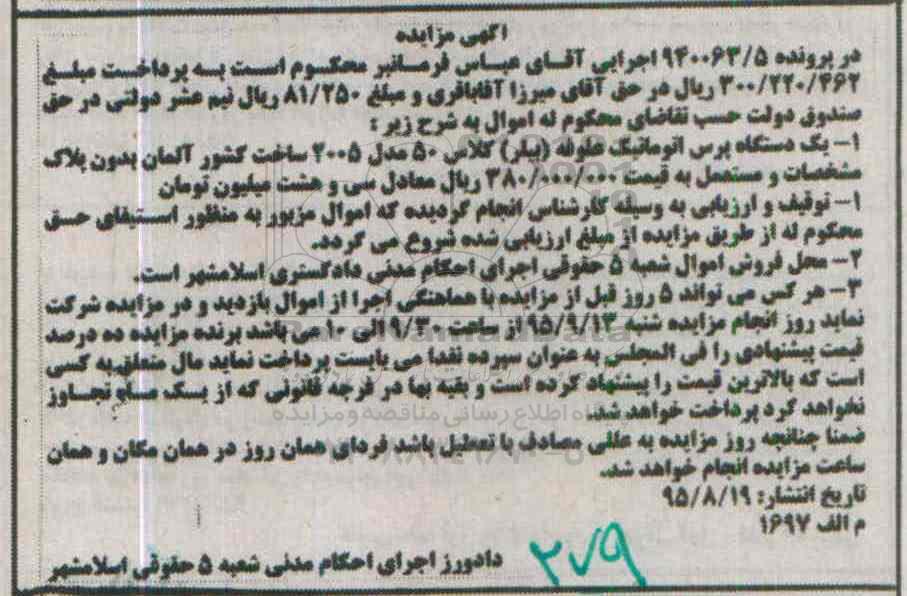 اگهی مزایده
در پرونده ۹۴۰۰۶۳/۵ اجرایی آقای عباس فرمانبر محکوم است به پرداخت مبلغ
۳۰۰/۲۲۰/۴۶۲ ریال در حق آقای میرزا آقاباقری و مبلغ ۸۱/۲۵۰ ریال نیم عشر دولتی در حق
صندوق دولت حسب تقاضای محکوم له اموال به شرح زیر :
۱- یک دستگاه پرس اتوماتیک علوفه (بیلر) کلاس ۵۰ مدل ۲۰۰۵ ساخت کشور آلمان بدون پلاک
مشخصات و مستعمل به قیمت ۳۸۰/۰۰۰/۰۰۰ ریال معادل سی و هشت میلیون تومان
۱- توقیف و ارزیابی به وسیله کارشناس انجام گردیده که اموال مزبور به منظور استیفای حق
محکوم له از طریق مزایده از مبلغ ارزیابی شده شروع می گردد.
۲- محل فروش اموال شعبه ۵ حقوقی اجرای احکام مدنی دادگستری اسلامشهر است.
۳- هر کس می تواند ۵ روز قبل از مزایده با هماهنگی اجرا از اموال بازدید و در مزایده شرکت
نماید روز انجام مزایده شنبه ۹۵/۹/۱۳ از ساعت ۹/۳۰ الی ۱۰ می باشد برنده مزایده ده درصد
قیمت پیشنهادی را فی المجلس به عنوان سپرده نقدا می بایست پرداخت نماید مال متعلق به کسی
است که بالاترین قیمت را پیشنهاد کرده است و بقیه بها در فرجه قانونی که از یک ماه تجاوز
نخواهد کرد پرداخت خواهد شد.
ضمنا چنانچه روز مزایده به عللی مصادف با تعطیل باشد فردای همان روز در همان مکان و همان
ساعت مزایده انجام خواهد شد.
تاریخ انتشار: ۹۵/۸/۱۹
م الف ۱۶۹۷
دادورز اجرای احکام مدنی شعبه ۵ حقوقی اسلامشهر
۲۷۹